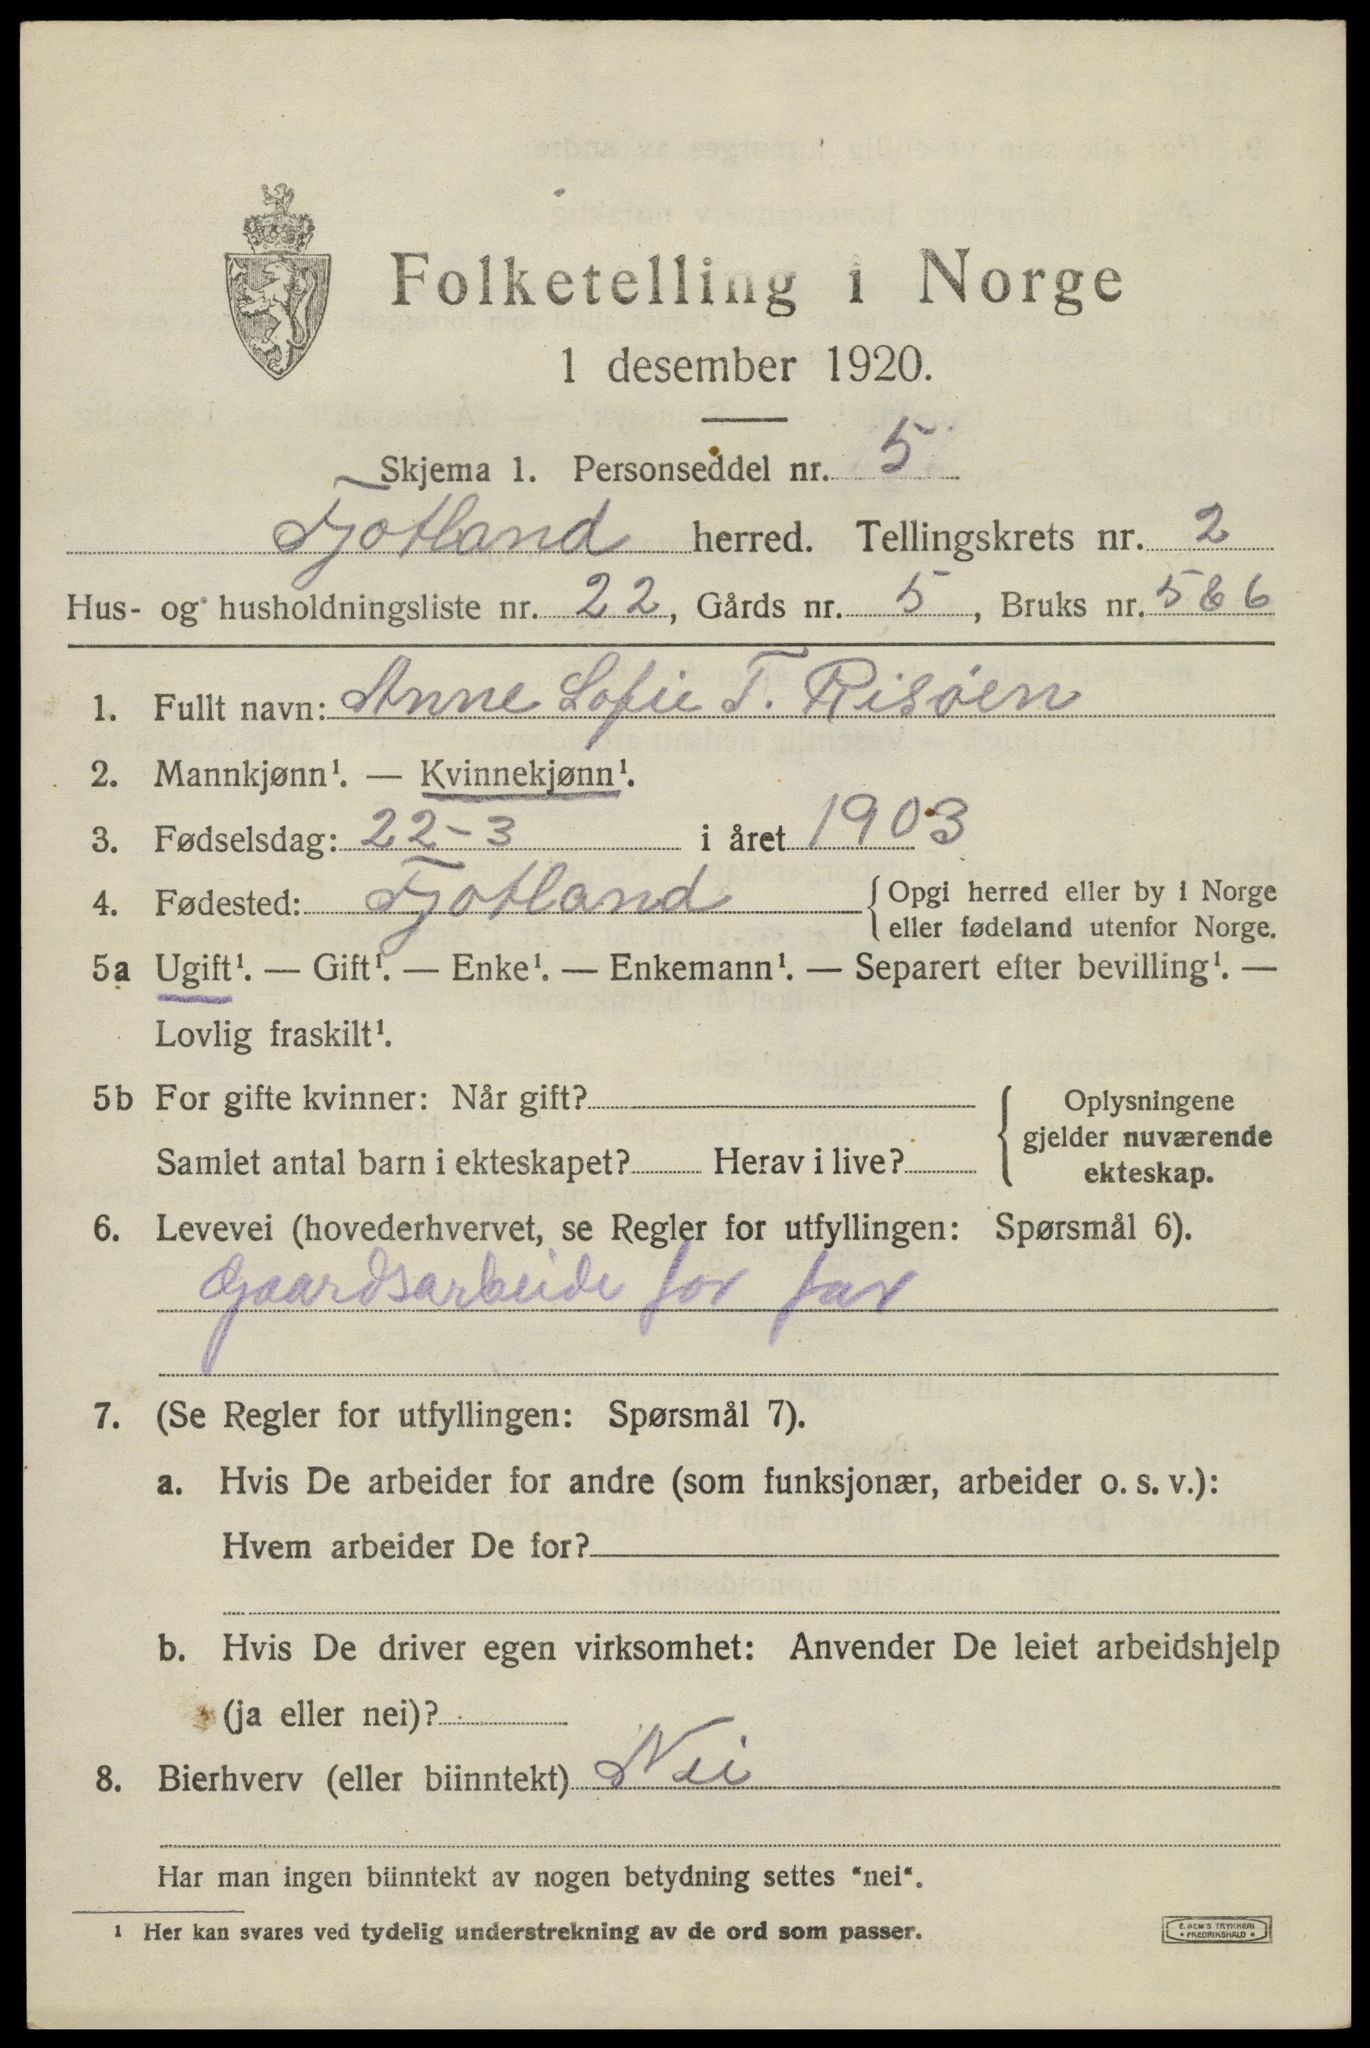 Folketelling i Norge
1 desember 1920.
Skjema 1. Personseddel nr. 5
Fjotland herred. Tellingskrets nr. 2
Hus- og husholdningsliste nr. 22, Gårds nr. 5, Bruks nr. 5 & 6
1. Fullt navn: Anne Sofie T. Risöen
2. Mannkjønn¹. — Kvinnekjønn¹.
3. Fødselsdag: 22-3 i året 1903
4. Fødested: Fjotland {Opgi herred eller by i Norge
eller fødeland utenfor Norge.
5a Ugift¹. — Gift¹. — Enke¹. — Enkemann¹. — Separert efter bevilling¹. —
Lovlig fraskilt¹.
5b For gifte kvinner: Når gift?
Samlet antal barn i ekteskapet? Herav i live?
{Oplysningene
gjelder nuværende
ekteskap.
6. Levevei (hovederhvervet, se Regler for utfyllingen: Spørsmål 6).
Gaardsarbeide for far
7. (Se Regler for utfyllingen: Spørsmål 7).
a. Hvis De arbeider for andre (som funksjonær, arbeider o. s. v.):
Hvem arbeider De for?
b. Hvis De driver egen virksomhet: Anvender De leiet arbeidshjelp
(ja eller nei)?
8. Bierhverv (eller biinntekt) Nei
Har man ingen biinntekt av nogen betydning settes "nei".
¹ Her kan svares ved tydelig understrekning av de ord som passer.
TRYKKERI
FREDRIKSHALD